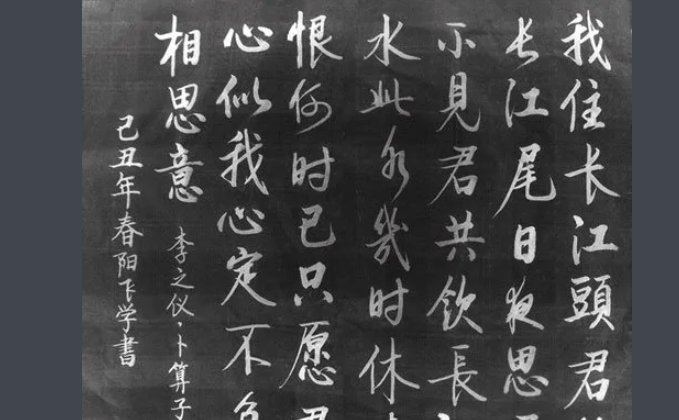 我住长江頭君
长江尾日夜思
不見君共飲長
水此水幾时休
恨何时已只愿君
心似我心定不負
相思意
李之仪·卜算子
己丑年春阳飞学書